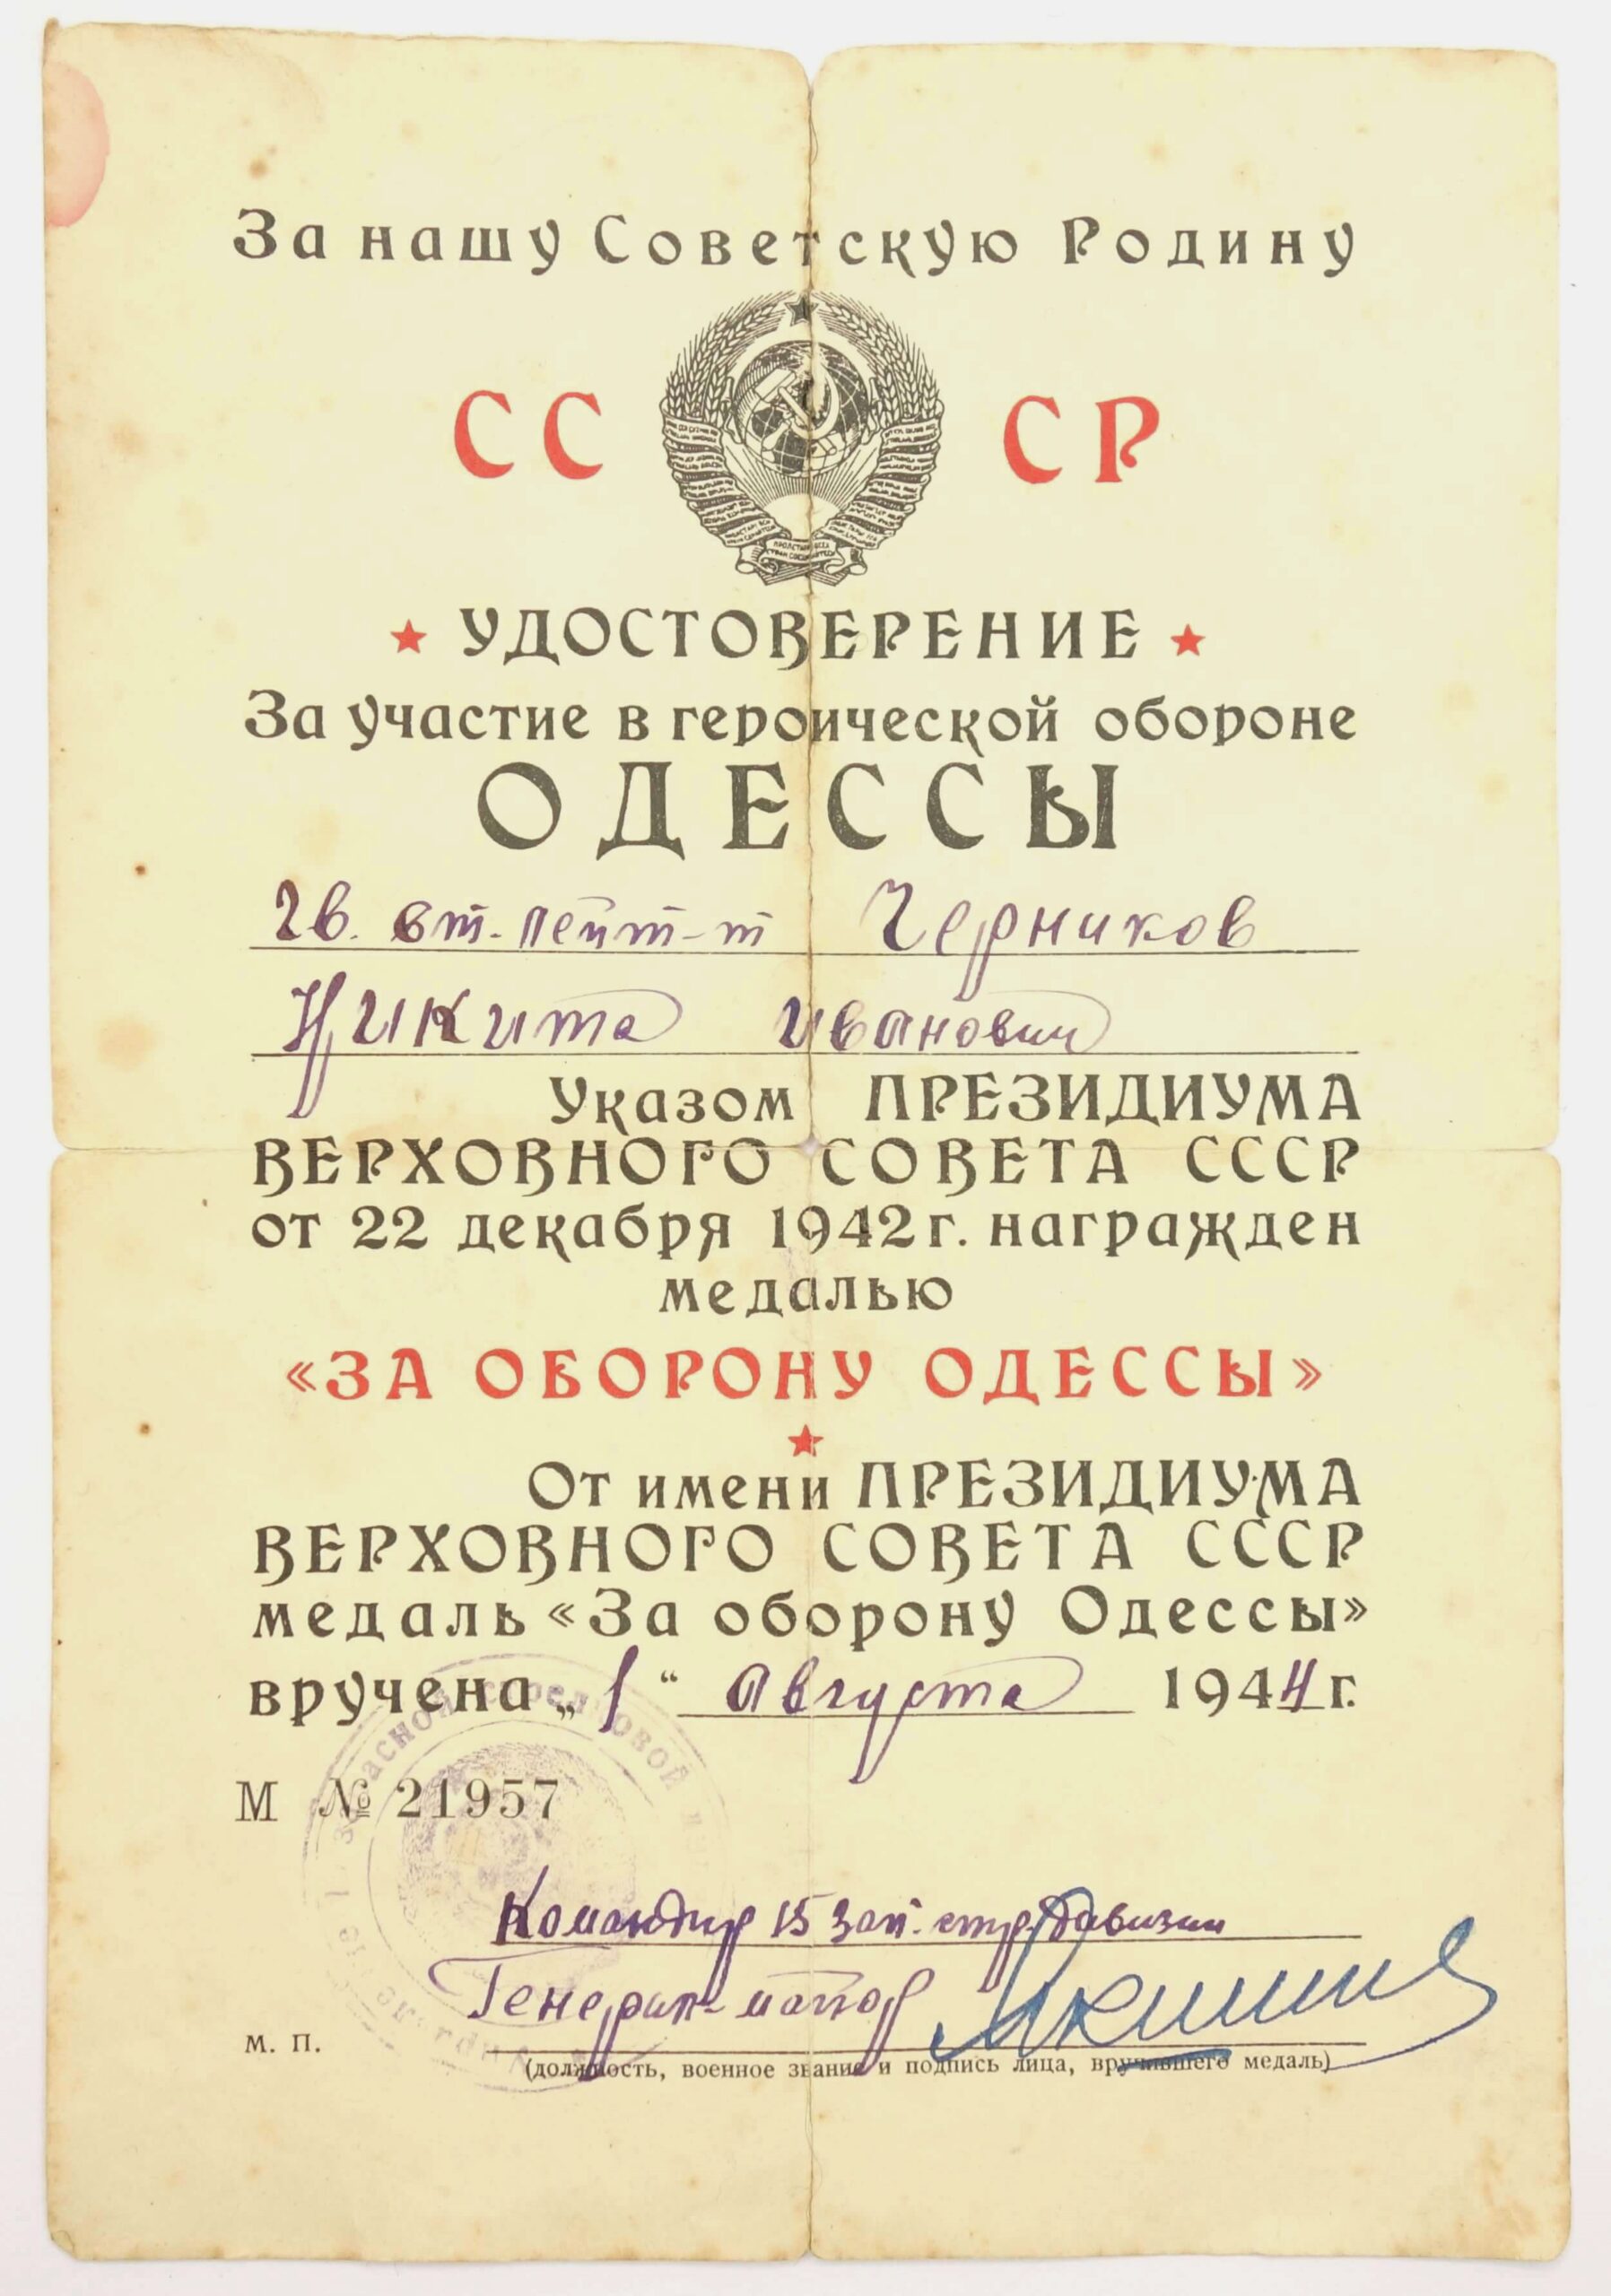 За нашу Советскую Родину
СС СР
УДОСТОВЕРЕНИЕ
За участие в героической обороне
ОДЕССЫ
Гв. ст. лейт-т Черников
Никита Иванович
Указом ПРЕЗИДИУМА
ВЕРХОВНОГО СОВЕТА СССР
от 22 декабря 1942 г. награжден
медалью
«ЗА ОБОРОНУ ОДЕССЫ»
От имени ПРЕЗИДИУМА
ВЕРХОВНОГО СОВЕТА СССР
медаль «За оборону Одессы»
вручена „1“ Августа 1944 г.
М № 21957
Командир 15 зап. стр. дивизии
Генерал-майор
м. п.
(должность, военное звание и подпись лица, вручившего медаль)